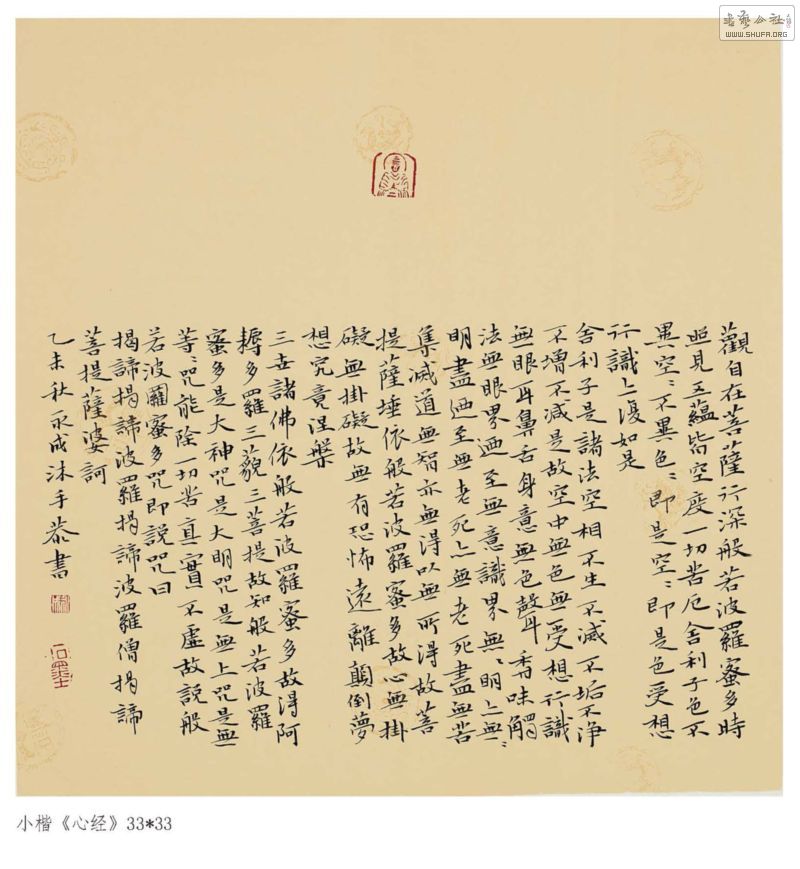 書藝公社
WWW.SHUFA.ORG
觀自在菩薩行深般若波羅蜜多時
照見五蘊皆空度一切苦厄舍利子色不
異空〻不異色〻即是空〻即是色受想
行識亦復如是
舍利子是諸法空相不生不滅不垢不净
不增不減是故空中無色無受想行識
無眼耳鼻舌身意無色聲香味觸
法無眼界乃至無意識界無〻明亦無〻
明盡乃至無老死亦無老死盡無苦
集滅道無智亦無得以無所得故菩
提薩埵依般若波羅蜜多故心無掛
礙無掛礙故無有恐怖遠離顛倒夢
想究竟涅槃
三世諸佛依般若波羅蜜多故得阿
耨多羅三藐三菩提故知般若波羅
蜜多是大神咒是大明咒是無上咒是無
等〻咒能除一切苦真實不虛故說般
若波羅蜜多咒即說咒曰
揭諦揭諦波羅揭諦波羅僧揭諦
菩提薩婆訶
乙未秋永成沐手恭書
小楷《心经》33*33